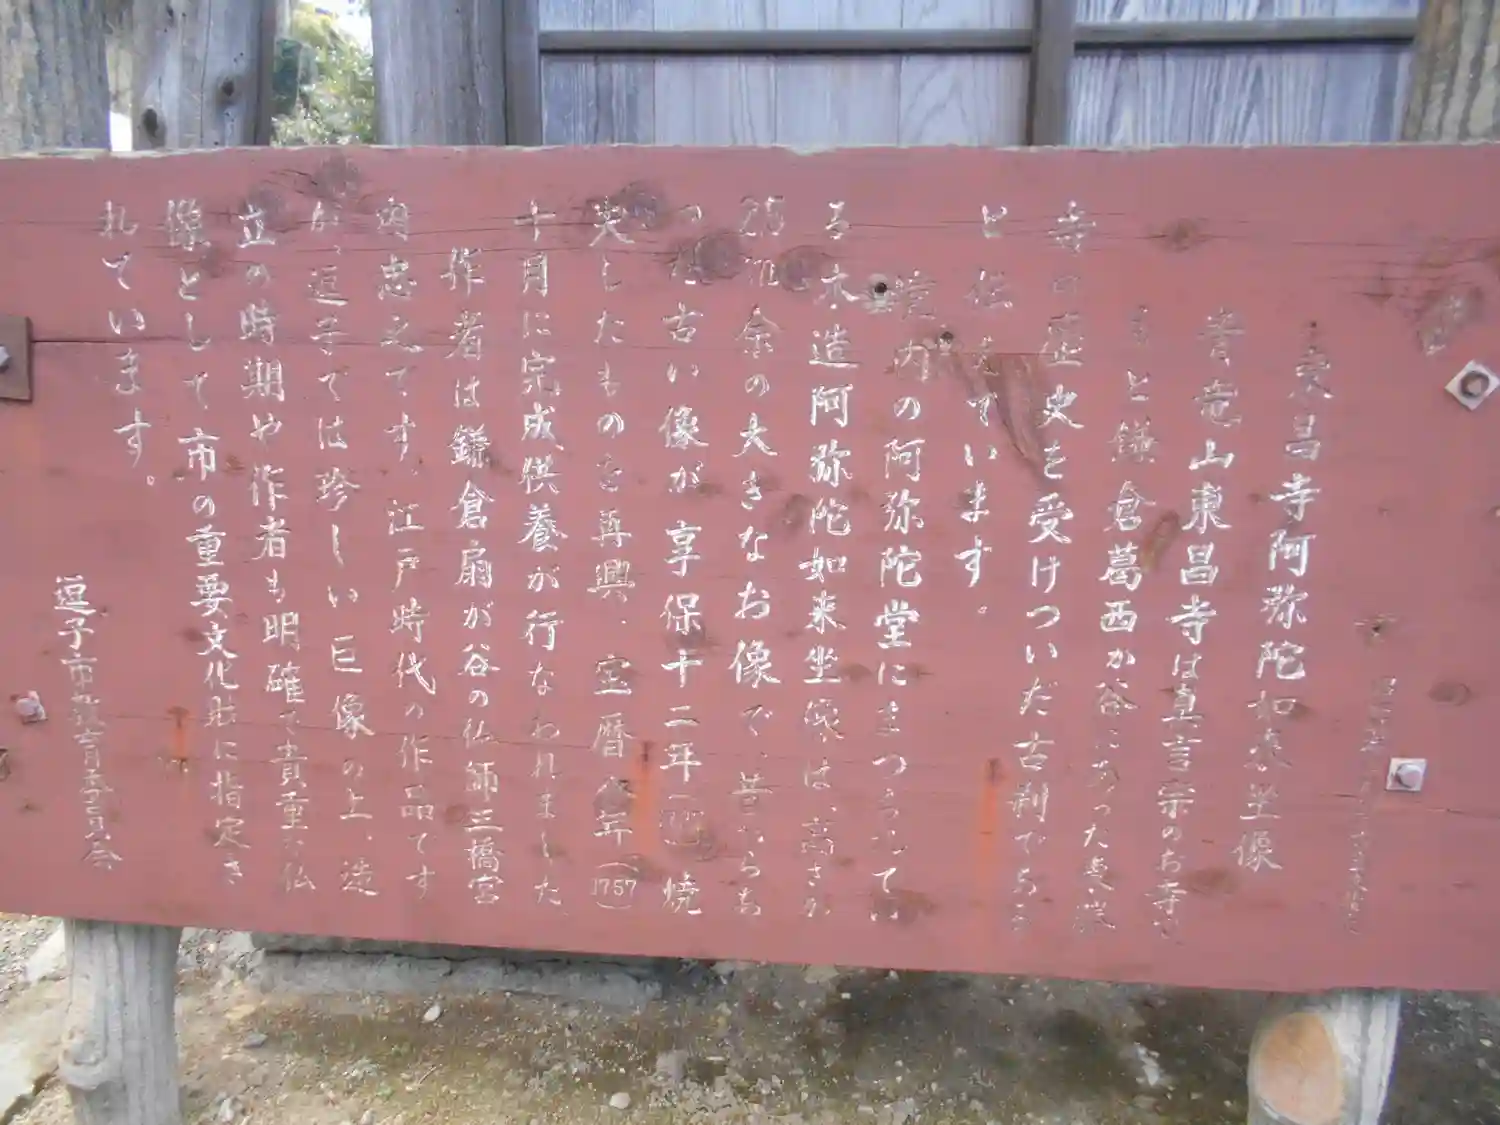 東昌寺阿弥陀如来坐像
青竜山東昌寺は真言宗のお寺で
もと鎌倉葛西か谷にあった東勝
寺の歴史を受けついだ古刹である
と伝えています。
境内の阿弥陀堂にまつられてい
る木造阿弥陀如来坐像は、高さが
25 余の大きなお像で、昔からあ
った古い像が享保十二年 焼
失したものを再興、宝暦 年(1757)
十月に完成供養が行なわれました
作者は鎌倉扇が谷の仏師三橋宮
内忠之です。江戸時代の作品です
が、逗子では珍しい巨像の上、造
立の時期や作者も明確で貴重な仏
像として市の重要文化財に指定さ
れています。
逗子市教育委員会